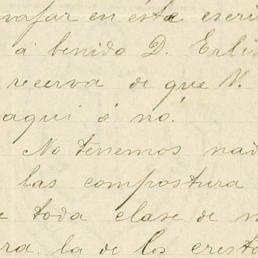 en este escri
a benido D. Erli
recerva de que V.
aqui ó nó.
No tenemos nad
las compostura
toda clase de m
ra. la de los cresto